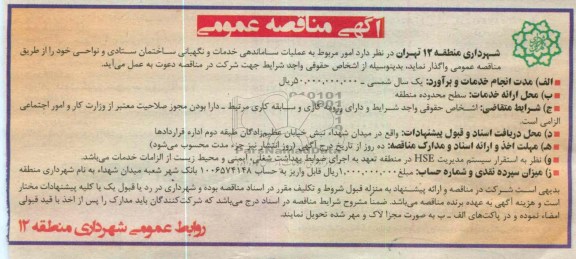 آگهی مناقصه عمومی
شهرداری منطقه ۱۲ تهران در نظر دارد امور مربوط به عملیات ساماندهی خدمات و نگهبانی ساختمان ستادی و نواحی خود را از طریق
مناقصه عمومی واگذار نماید، بدینوسیله از اشخاص حقوقی واجد شرایط جهت شرکت در مناقصه دعوت به عمل می‌آید.
الف) مدت انجام خدمات و برآورد: یک سال شمسی ـ ۵۰,۰۰۰,۰۰۰,۰۰۰ریال
ب) محل ارائه خدمات: سطح محدوده منطقه
ج) شرایط متقاضی: اشخاص حقوقی واجد شرایط و دارای رزومه کاری و سابقه کاری مرتبط ـ دارا بودن مجوز صلاحیت معتبر از وزارت کار و امور اجتماعی
الزامی است.
د) محل دریافت اسناد و قبول پیشنهادات: واقع در میدان شهداء نبش خیابان عظیم‌زادگان طبقه دوم اداره قراردادها
هـ) مهلت اخذ و ارائه اسناد و مدارک مناقصه: ده روز از تاریخ درج آگهی (روز انتشار نیز جزء مدت محسوب می‌شود)
و) نظر به استقرار سیستم مدیریت HSE در منطقه تعهد به اجرای ضوابط بهداشت شغلی، ایمنی و محیط زیست از الزامات خدمات می‌باشد.
ز) میزان سپرده نقدی و شماره حساب: مبلغ ۱,۰۰۰,۰۰۰,۰۰۰ریال قابل واریز به حساب ۱۰۰۶۵۷۴۱۴۸ بانک شهر شعبه میدان شهداء به نام شهرداری منطقه
بدیهی است شرکت در مناقصه و ارائه پیشنهاد به منزله قبول شروط و تکلیف مقرر در اسناد مناقصه بوده و شهرداری در رد یا قبول یک یا کلیه پیشنهادات مختار
است و هزینه آگهی به عهده برنده مناقصه می‌باشد. ضمناً مشروح شرایط مناقصه در اسناد درج می‌باشد که شرکت‌کنندگان باید مدارک را پس از اخذ با قید قبولی
امضاء نموده و در پاکت‌های الف ـ ب به صورت مجزا لاک و مهر شده تحویل نمایند.
روابط عمومی شهرداری منطقه ۱۲